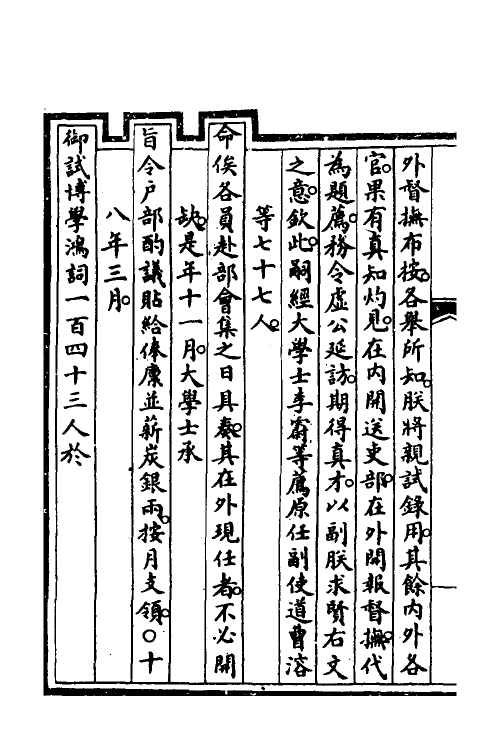 外督撫布按。各舉所知。朕將親試錄用。其餘內外各
官。果有真知灼見。在內開送吏部。在外開報督撫。代
為題薦。務令虛公延訪。期得真才。以副朕求賢右文
之意。欽此。嗣經大學士李霨等薦原任副使道曹溶
等七十七人。
命俟各員赴部會集之日具奏。其在外現任者。不必開
缺。是年十一月。大學士承
旨令戶部酌議貼給俸廩並薪炭銀兩。按月支領。○十
八年三月。
御試博學鴻詞一百四十三人於